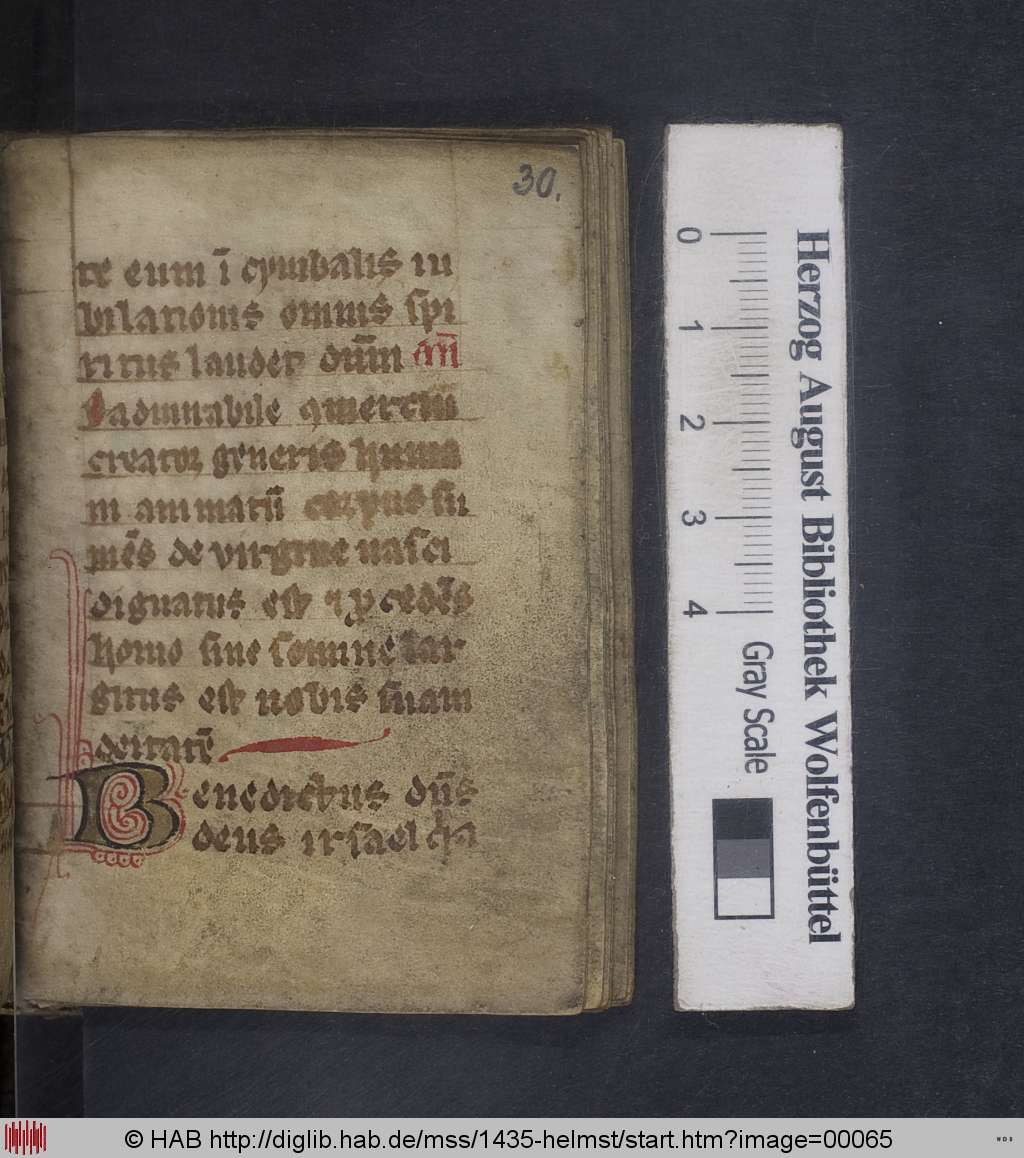 30.
te eum ī cymbalis iu
bilationis omnis spi
ritus laudet dūm añ
O admirabile ꝯmerciū
creator generis huma
ni animatū corpus sū
mēs de virgine nasci
dignatus est ⁊ ꝓcedēs
homo sine semine lar
gitus est nobis suam
deitatē
Benedictus dn̄s
deus irsael qꝛa
Herzog August Bibliothek Wolfenbüttel
0
1
2
3
4
Gray Scale
© HAB http://diglib.hab.de/mss/1435-helmst/start.htm?image=00065